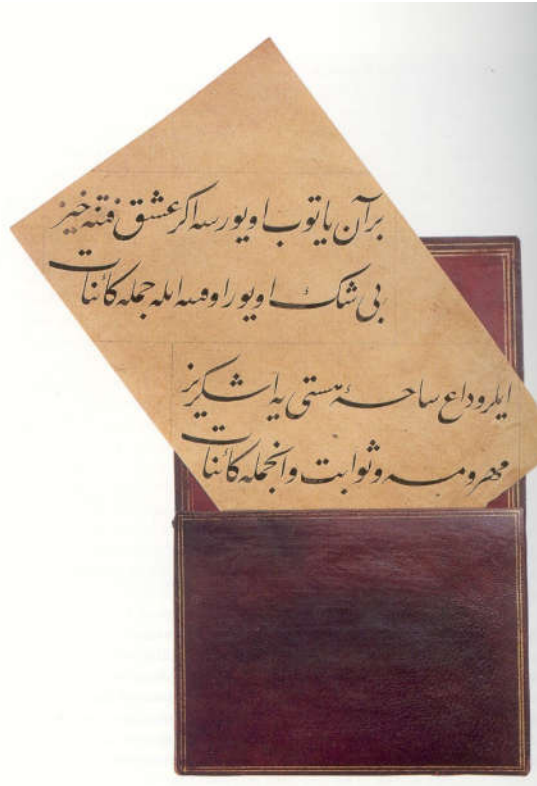 بر آن یاتوب اویورسه اگر عشق فتنه خیز
بی شك اویور اوفسه ایله جمله كائنات
ایلر وداع ساحهٔ هستی یه اشكریز
مهر و مه و ثوابت و انجمله كائنات